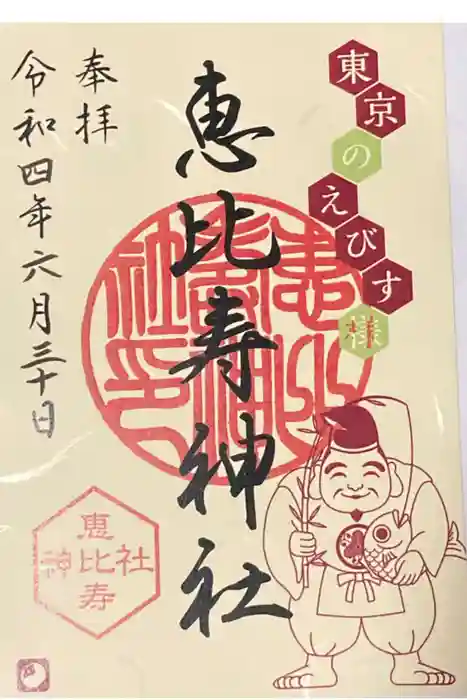 東京のえびす様
恵比寿神社
奉拝
令和四年六月三十日
恵比寿神社
恵比寿神社印